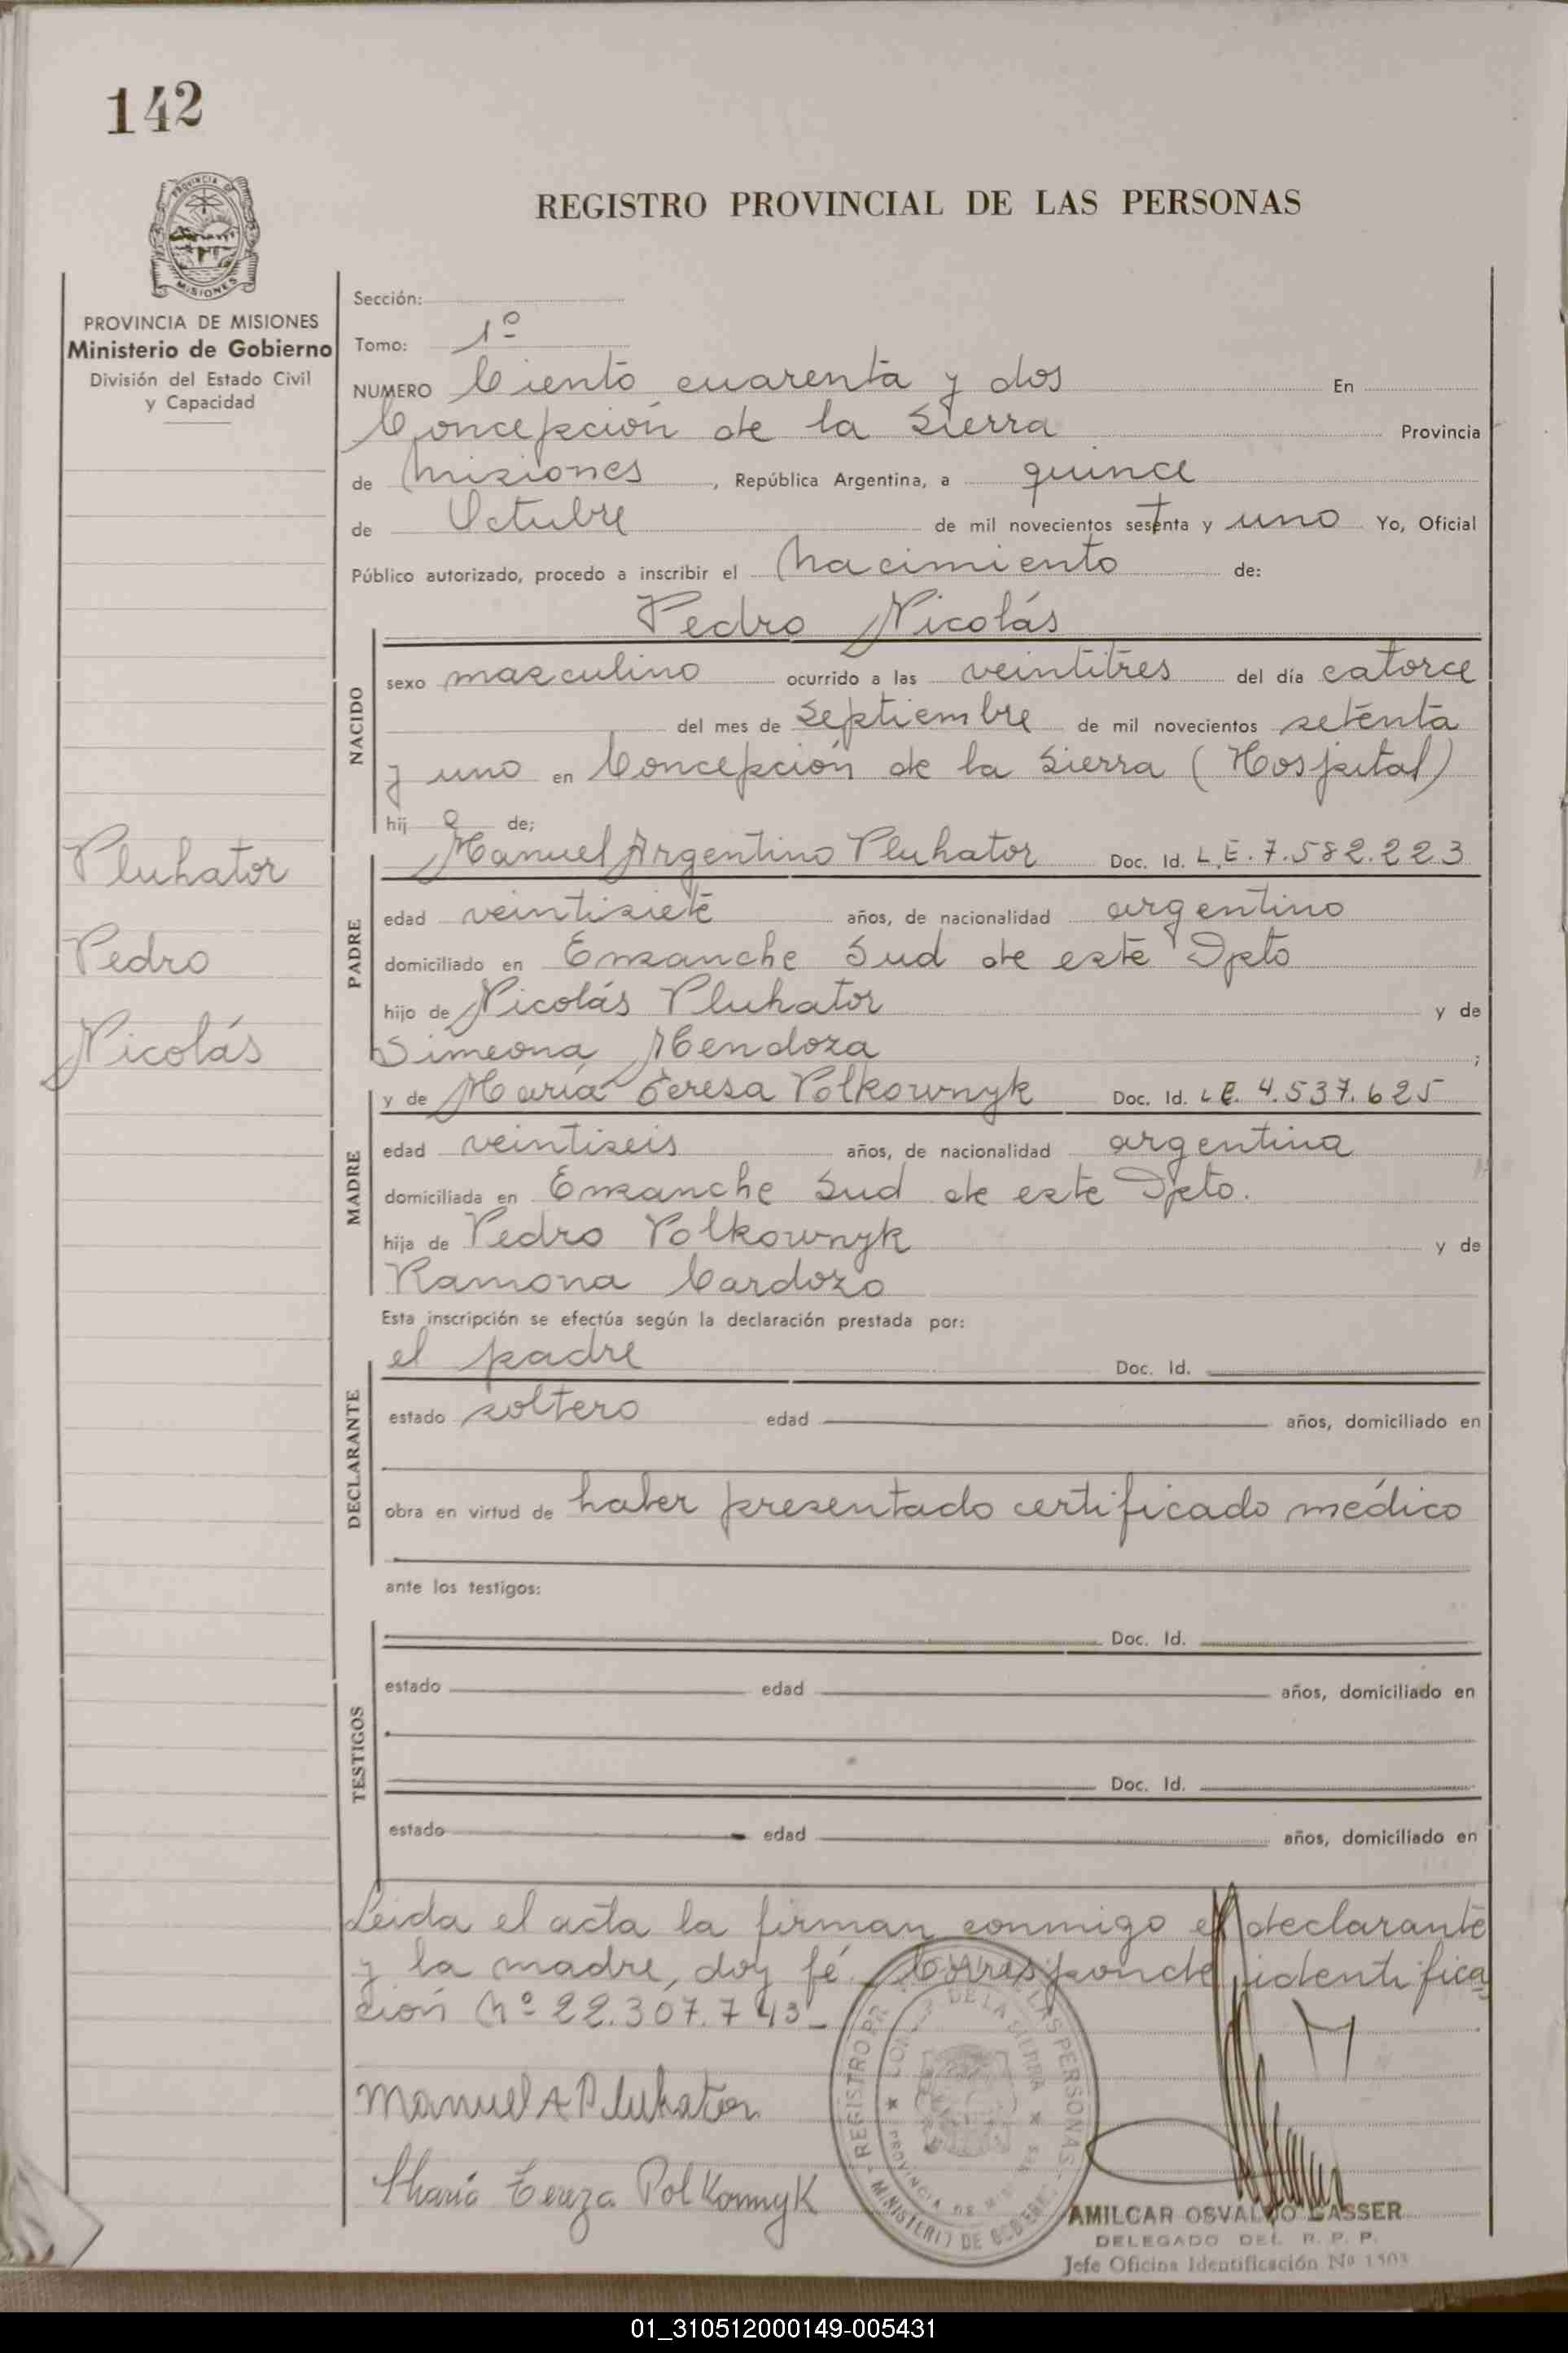 142
REGISTRO PROVINCIAL DE LAS PERSONAS
PROVINCIA DE MISIONES
PROVINCIA DE MISIONES
Ministerio de Gobierno
División del Estado Civil
y Capacidad
Sección:
Tomo: 1º
NUMERO Ciento cuarenta y dos En
Concepción de la Sierra Provincia
de Misiones, República Argentina, a quince
de Octubre de mil novecientos setenta y uno Yo, Oficial
Público autorizado, procedo a inscribir el Nacimiento de:
Pedro Nicolás
NACIDO
sexo masculino ocurrido a las veintitres del día catorce
del mes de Septiembre de mil novecientos setenta
y uno en Concepción de la Sierra (Hospital)
hij o de;
Pluhator
Pedro
Nicolás
PADRE
Manuel Argentino Pluhator Doc. Id. L.E. 7.582.223
edad veintisiete años, de nacionalidad argentino
domiciliado en Ensanche Sud de este Dpto
hijo de Nicolás Pluhator y de
Simeona Mendoza ;
MADRE
y de María Teresa Polkownyk Doc. Id. L.E. 4.537.625
edad veintiseis años, de nacionalidad argentina
domiciliada en Ensanche Sud de este Dpto.
hija de Pedro Polkownyk y de
Ramona Cardozo
Esta inscripción se efectúa según la declaración prestada por:
DECLARANTE
el padre Doc. Id.
estado soltero edad años, domiciliado en
obra en virtud de haber presentado certificado médico
ante los testigos:
TESTIGOS
Doc. Id.
estado edad años, domiciliado en
Doc. Id.
estado edad años, domiciliado en
Leida el acta la firman conmigo el declarante
y la madre, doy fé. Corresponde identifica
ción Nº 22.307.743_
Manuel A Pluhator
María Tereza Polkownyk
REGISTRO PR DE LAS PERSONAS
MINISTERIO DE GOBIERNO
DE LA SIERRA
PROVINCIA DE
AMILCAR OSVALDO GASSER
DELEGADO DEL R. P. P.
Jefe Oficina Identificación Nº 1503
01_310512000149-005431